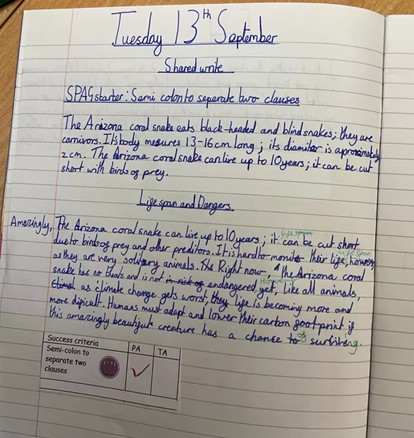 Tuesday 13th September
Shared write
SPAG starter: Sami colon to separate two clauses
The Arizona coral snake eats black-headed and blind snakes; they are
carnivors. Its body mesures 13-16cm long; its diamiter is aproximately
2cm. The Arizona coral snake can live up to 10 years; it can be cut
short with birds of prey.
Life span and Dangers
Amazingly, The Arizona coral snake can live up to 10 years; it can be cut short
due to birds of prey and other preditors. It is hard to moniter their life, however,
as they are very solitary animals. Right now, the Arizona coral
snake has no threats and is not endangered yet, like all animals,
as climate change gets worst, life is becoming more and
more dificult. Humans must adapt and lower their carbon footprint if
this amazingly beautifull creature has a chance to
Success criteria PA TA
Semi-colon to
separate two
clauses